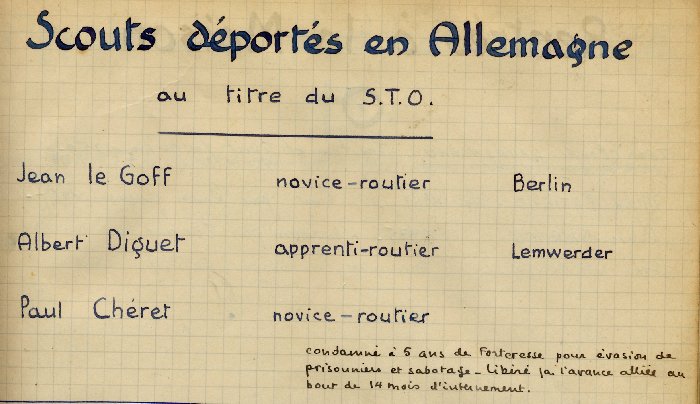 Scouts déportés en Allemagne
au titre du S.T.O.
Jean le Goff novice-routier Berlin
Albert Diguet apprenti-routier Lemwerder
Paul Chéret novice-routier
condamné à 5 ans de Forteresse pour évasion de
prisonniers et sabotage - libéré par l'avance alliée au
bout de 14 mois d'internement.